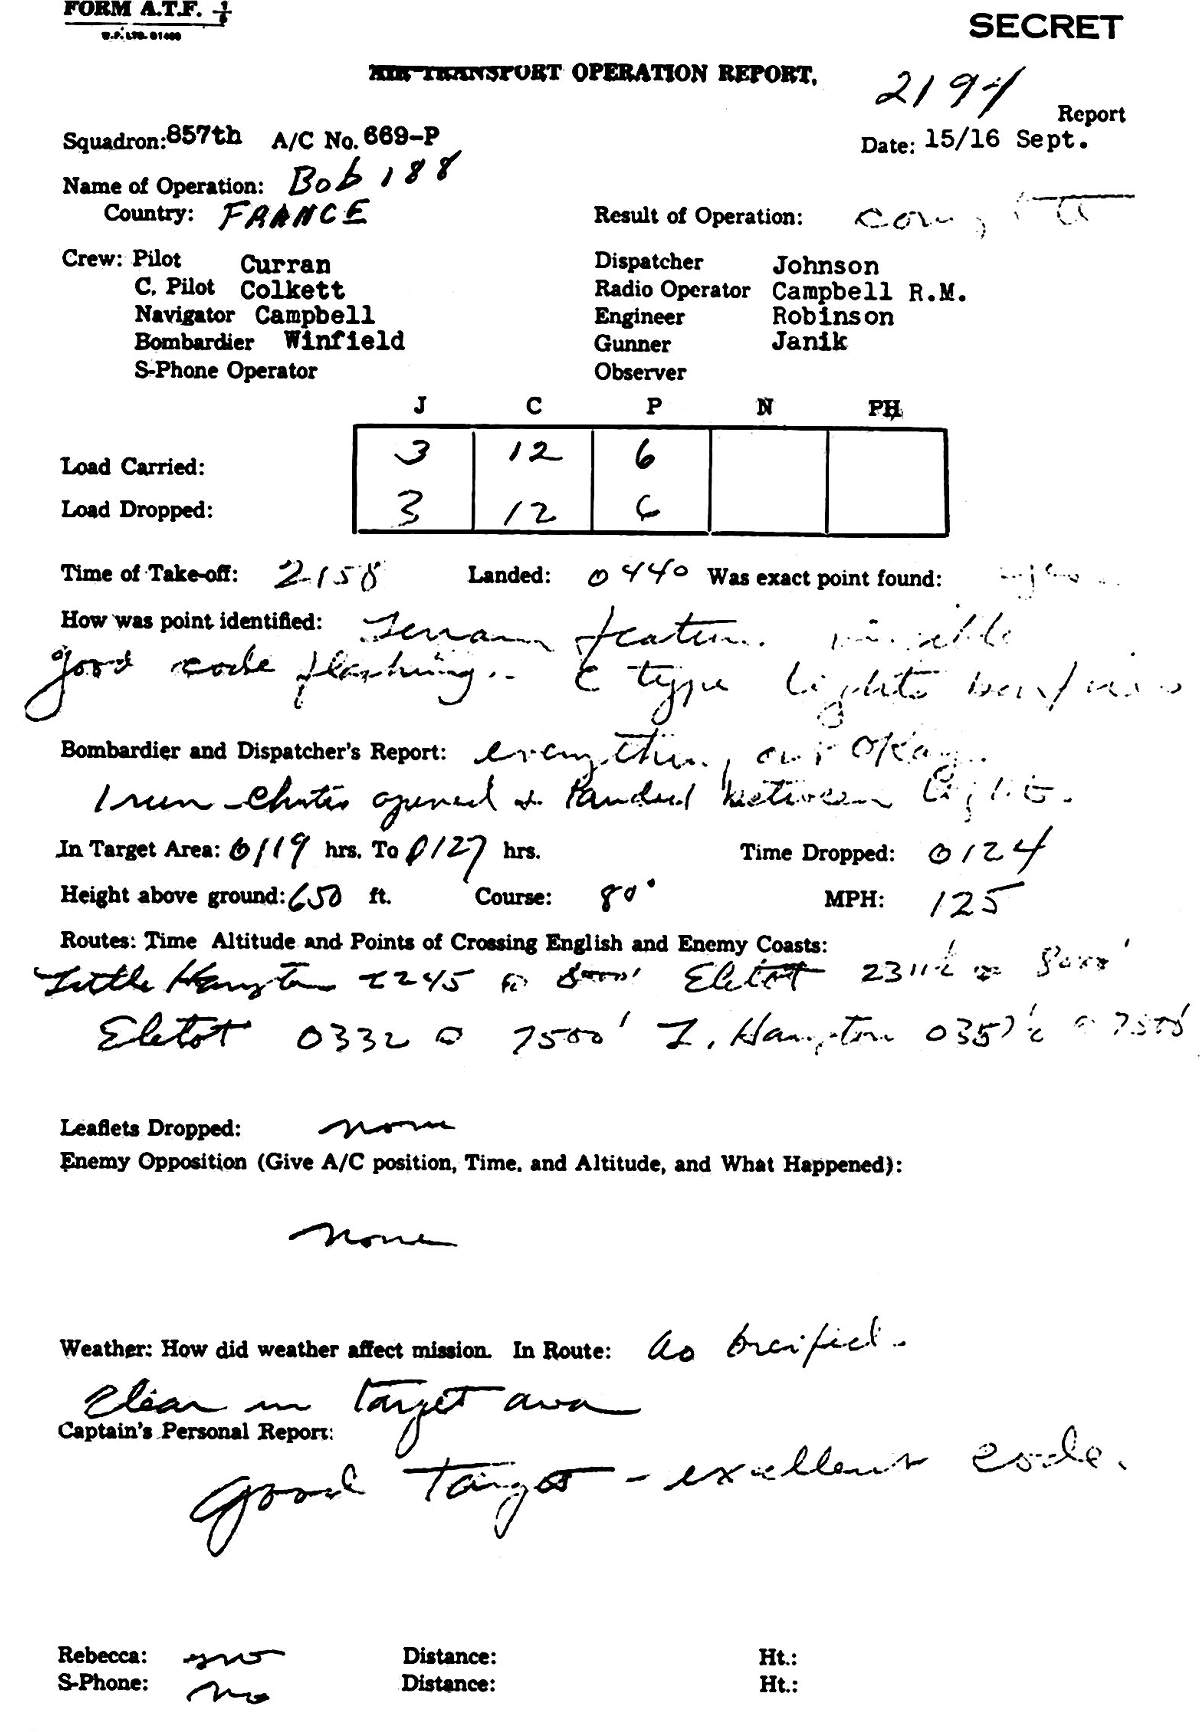 FORM A.T.F. 1/6
W.P. LTD. 01400
SECRET
AIR TRANSPORT OPERATION REPORT.
2194
Report
Squadron: 857th A/C No. 669-P
Date: 15/16 Sept.
Name of Operation: Bob 188
Country: FRANCE
Result of Operation:
Crew: Pilot Curran
C. Pilot Colkett
Navigator Campbell
Bombardier Winfield
S-Phone Operator
Dispatcher Johnson
Radio Operator Campbell R.M.
Engineer Robinson
Gunner Janik
Observer
J C P N PH
Load Carried: 3 12 6
Load Dropped: 3 12 6
Time of Take-off: 2158 Landed: 0440 Was exact point found: yes
How was point identified: Terrain features visible
good code flashing.. C type lights bonfires
Bombardier and Dispatcher's Report: everything out okay.
1 run - Chutes opened & landed between lights.
In Target Area: 0119 hrs. To 0127 hrs. Time Dropped: 0124
Height above ground: 650 ft. Course: 80° MPH: 125
Routes: Time Altitude and Points of Crossing English and Enemy Coasts:
Little Hampton 2245 @ 8000' Eletot 2311½ @ 8000'
Eletot 0332 @ 7500' L. Hampton 0357½ @ 7500'
Leaflets Dropped: none
Enemy Opposition (Give A/C position, Time, and Altitude, and What Happened):
none
Weather: How did weather affect mission. In Route: As breified.
Clear in target area
Captain's Personal Report:
Good Target - excellent code.
Rebecca: Distance: Ht.:
S-Phone: no Distance: Ht.: